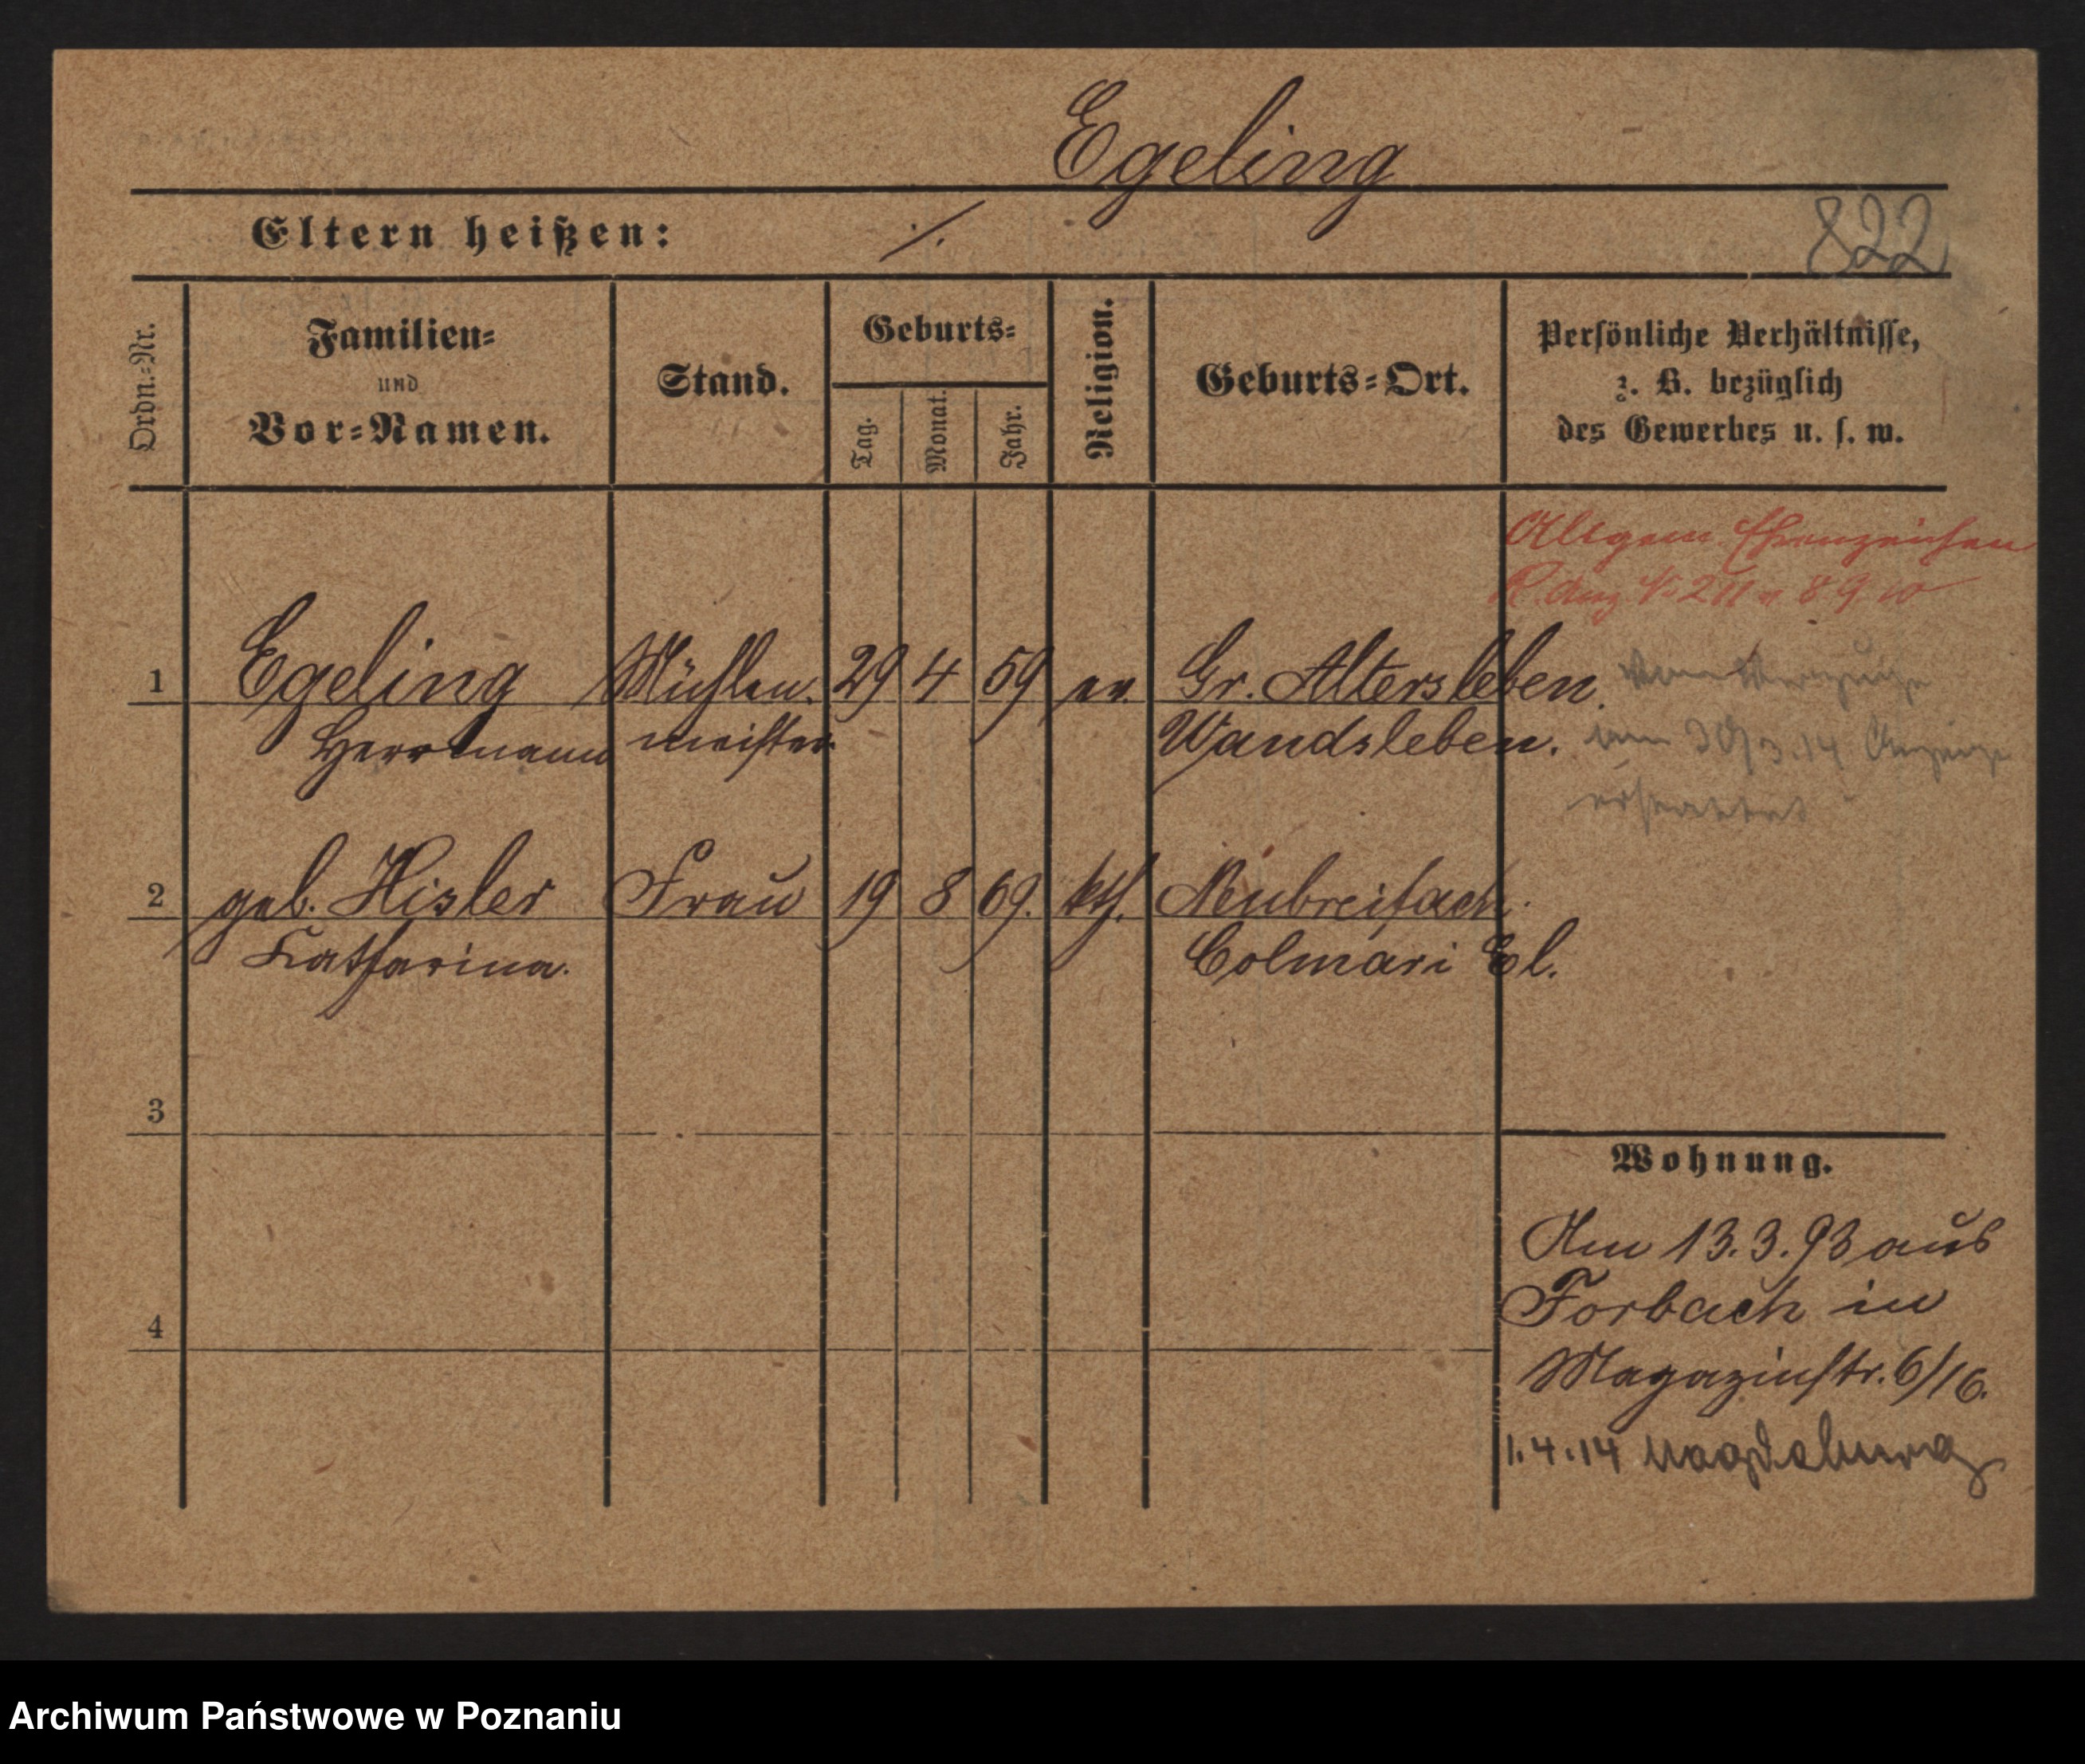 Egeling
Eltern heißen: ·/.
822
Ordn.-Nr.
Familien-
und
Vor-Namen.
Stand.
Geburts-
Tag.
Monat.
Jahr.
Religion.
Geburts-Ort.
Persönliche Verhältnisse,
z. B. bezüglich
des Gewerbes u. s. w.
Allgem. Ehrenzeichen
R. Anz 8 9 10
1 Egeling Mühlen- 29 4 59 ev. Gr. Altersleben.
Herrmann meister Wandsleben.
am 30/3.14 Anzeige
erstattet
2 geb. Hisler Frau 19 8 69. kth. Neubreisach.
Katharina. Colmar i El.
3
4
Wohnung.
Am 13.3.93 aus
Forbach in
Magazinstr. 6/16.
1.4.14 Magdeburg
Archiwum Państwowe w Poznaniu